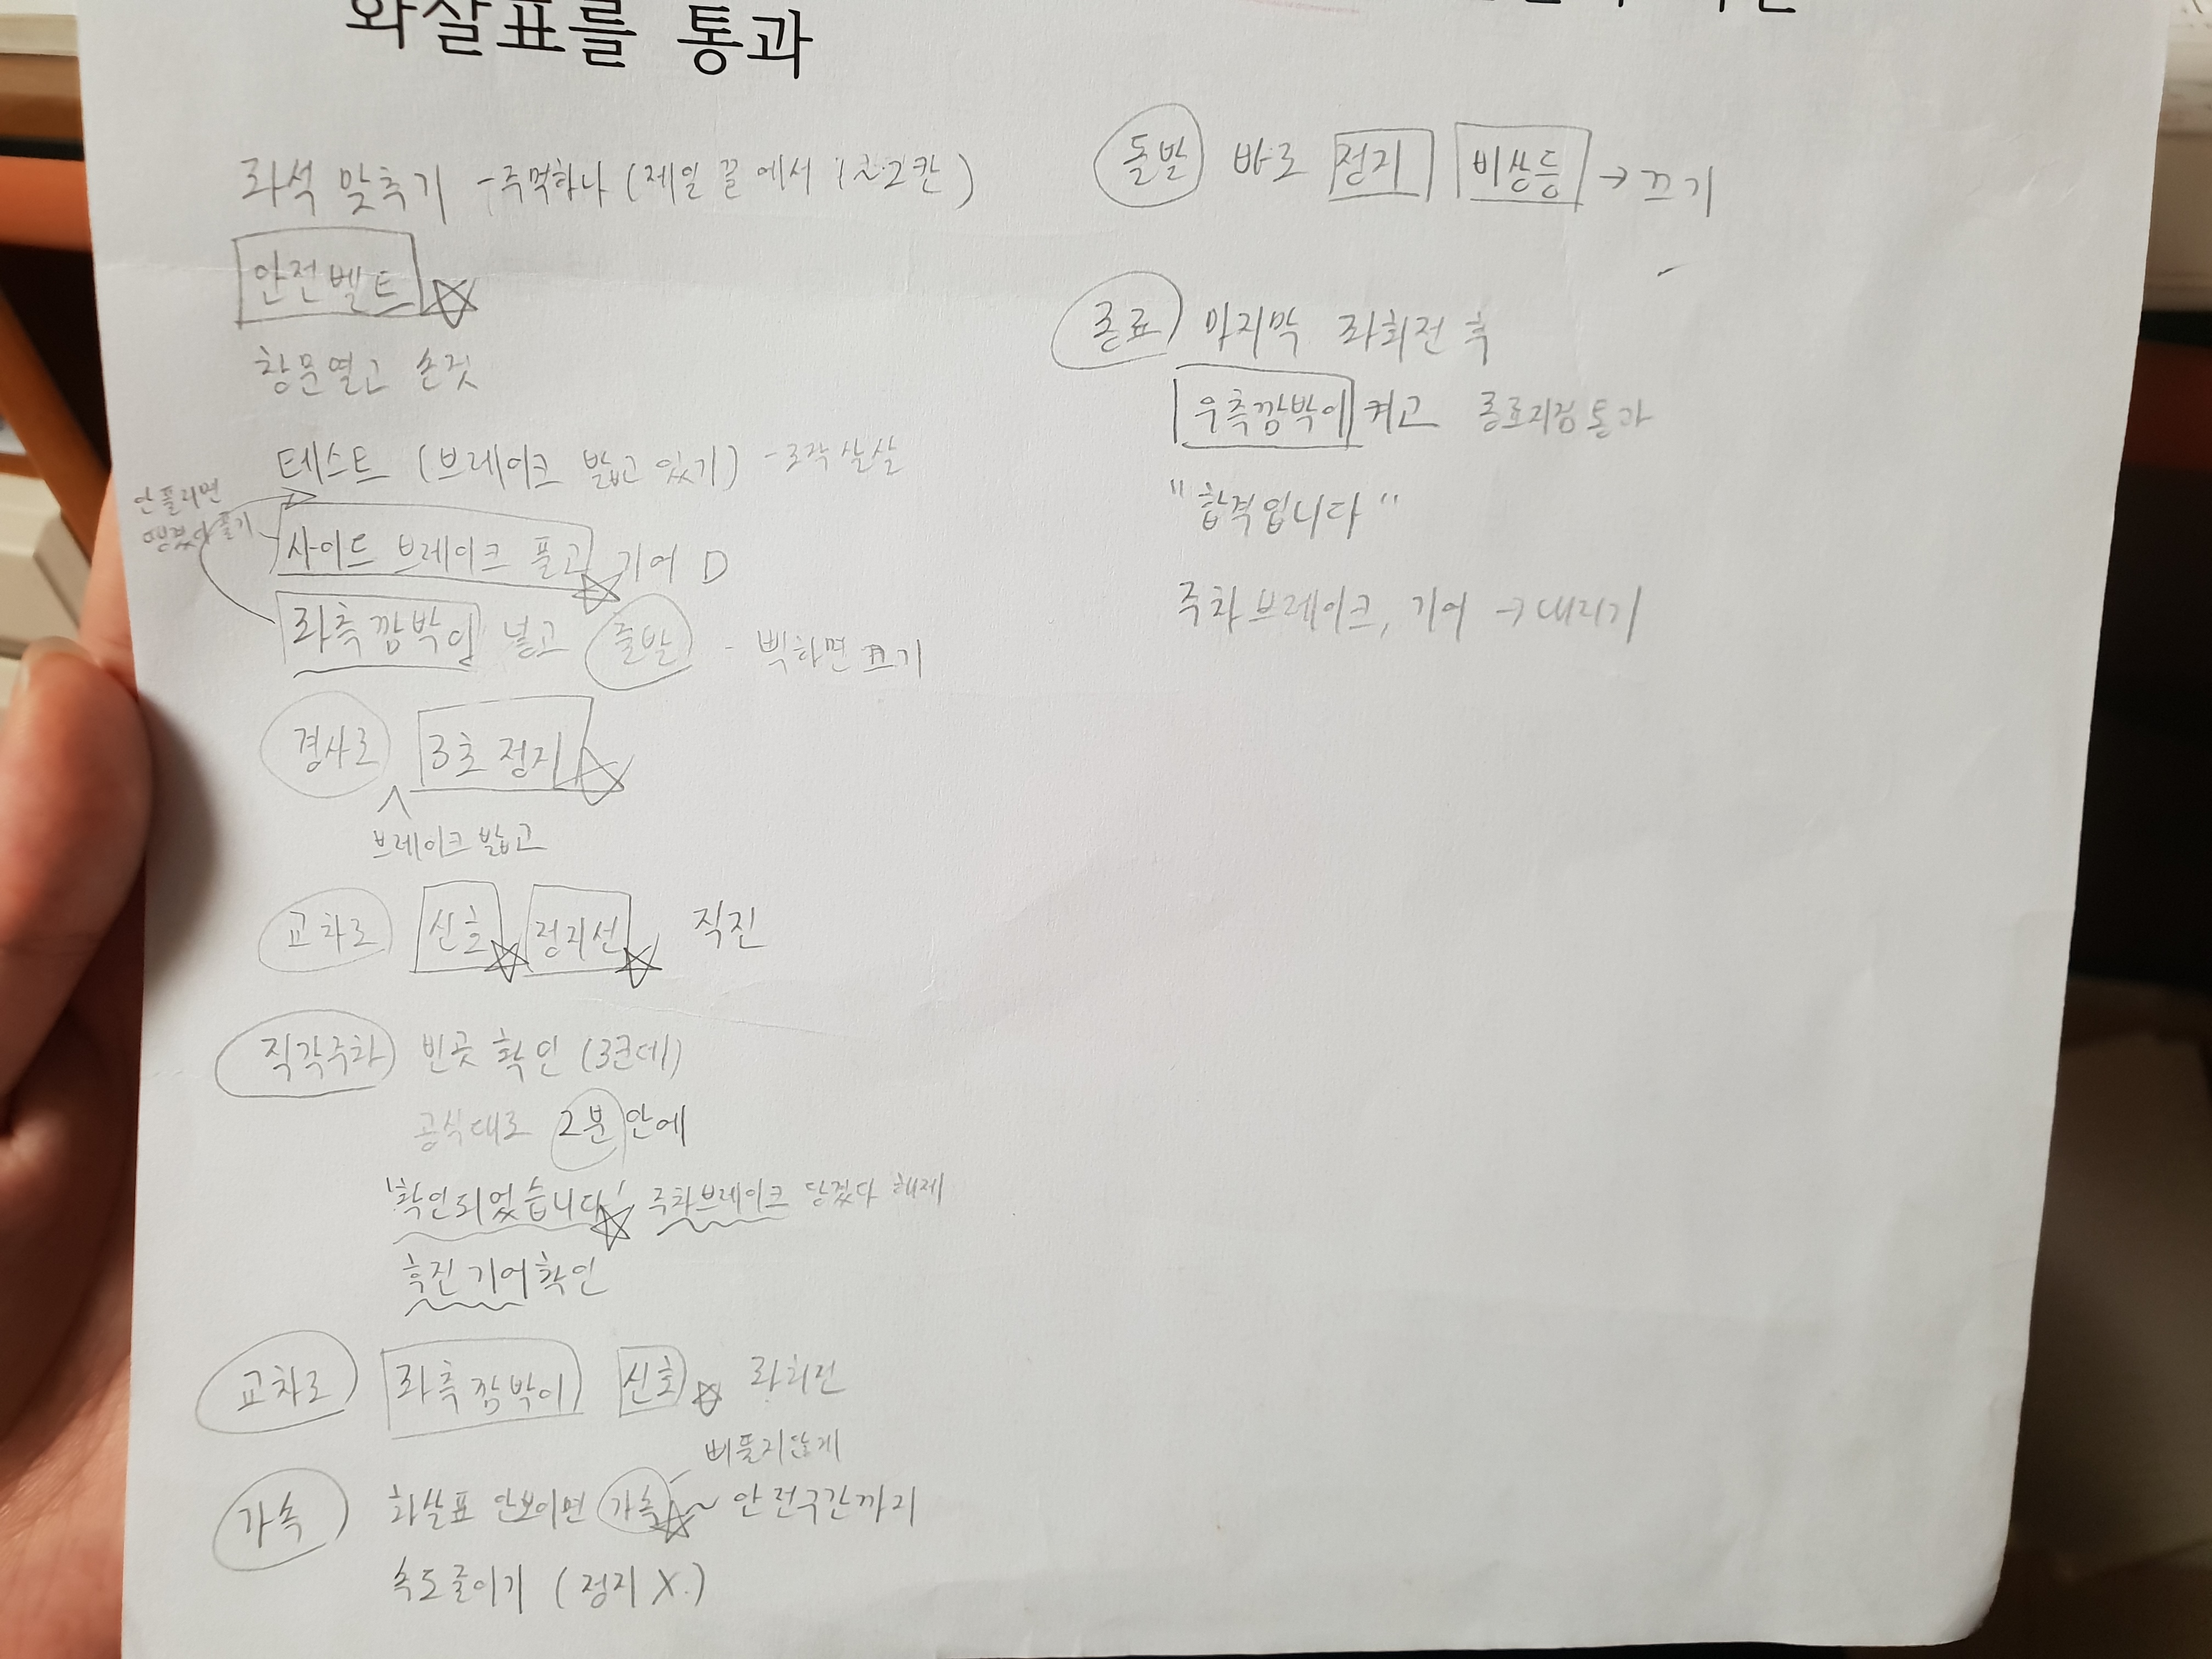 화살표를 통과
좌석 맞추기 - 주먹하나 (제일 끝에서 1~2칸)
안전벨트☆
창문열고 손짓
테스트 (브레이크 밟고 있기) - 조작 살살
안풀리면
땡겼다 풀기
사이드 브레이크 풀고☆ 기어 D
좌측깜박이 넣고 출발 - 삑하면 끄기
경사로 3초 정지☆
브레이크 밟고
교차로 신호☆ 정지선☆ 직진
직각주차 빈곳 확인 (3군데)
공식대로 2분 안에
'확인되었습니다'☆ 주차브레이크 당겼다 해제
후진 기어 확인
교차로 좌측깜박이 신호☆ 좌회전
삐뚤지않게
가속 화살표 안보이면 가속☆~ 안전구간까지
속도줄이기 (정지 X.)
돌발 바로 정지 비상등 → 끄기
종료 마지막 좌회전 후
우측깜박이 켜고 종료지점 통과
"합격입니다"
주차브레이크, 기어 → 내리기